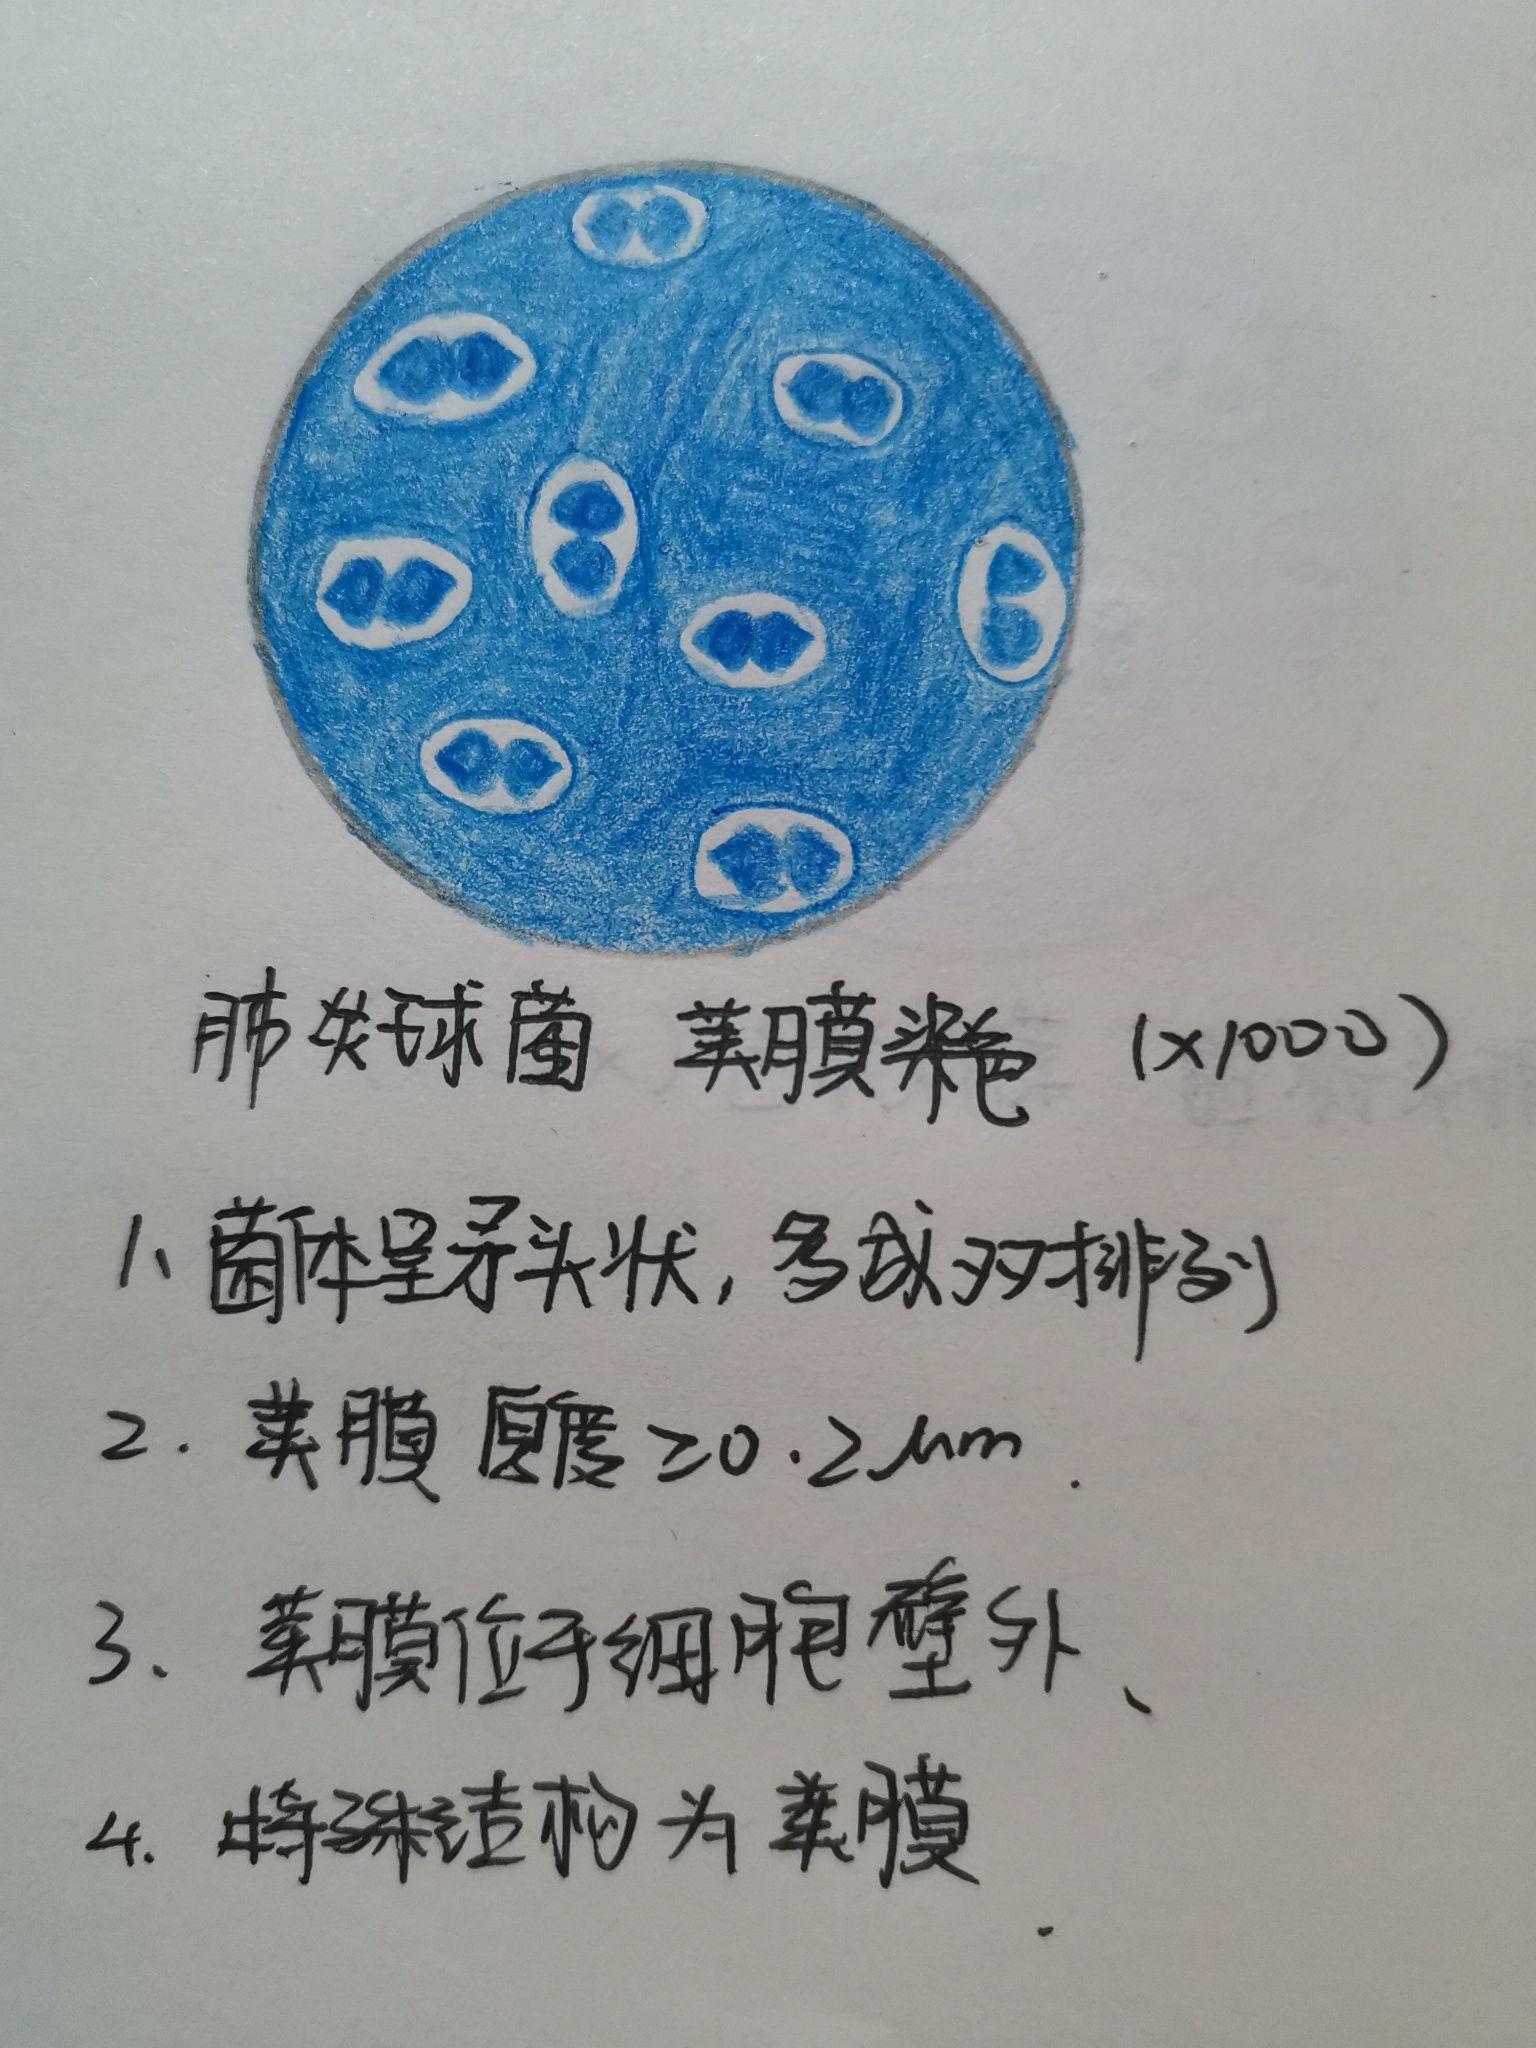 肺炎球菌 荚膜染色 (×1000)
1、菌体呈矛头状，多成双排列
2. 荚膜厚度≥0.2μm.
3、荚膜位于细胞壁外、
4. 特殊结构为荚膜.